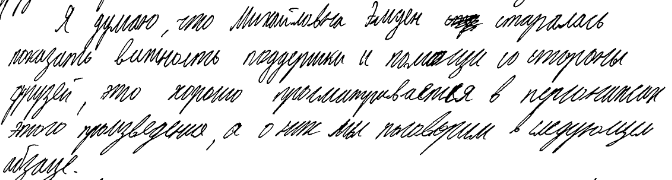 Я думаю, что Михайловна Элден старалась
показать важность поддержки и помощи со стороны
друзей, это хорошо просматривается в персонажах
этого произведения, а о них мы поговорим в следующем
абзаце.